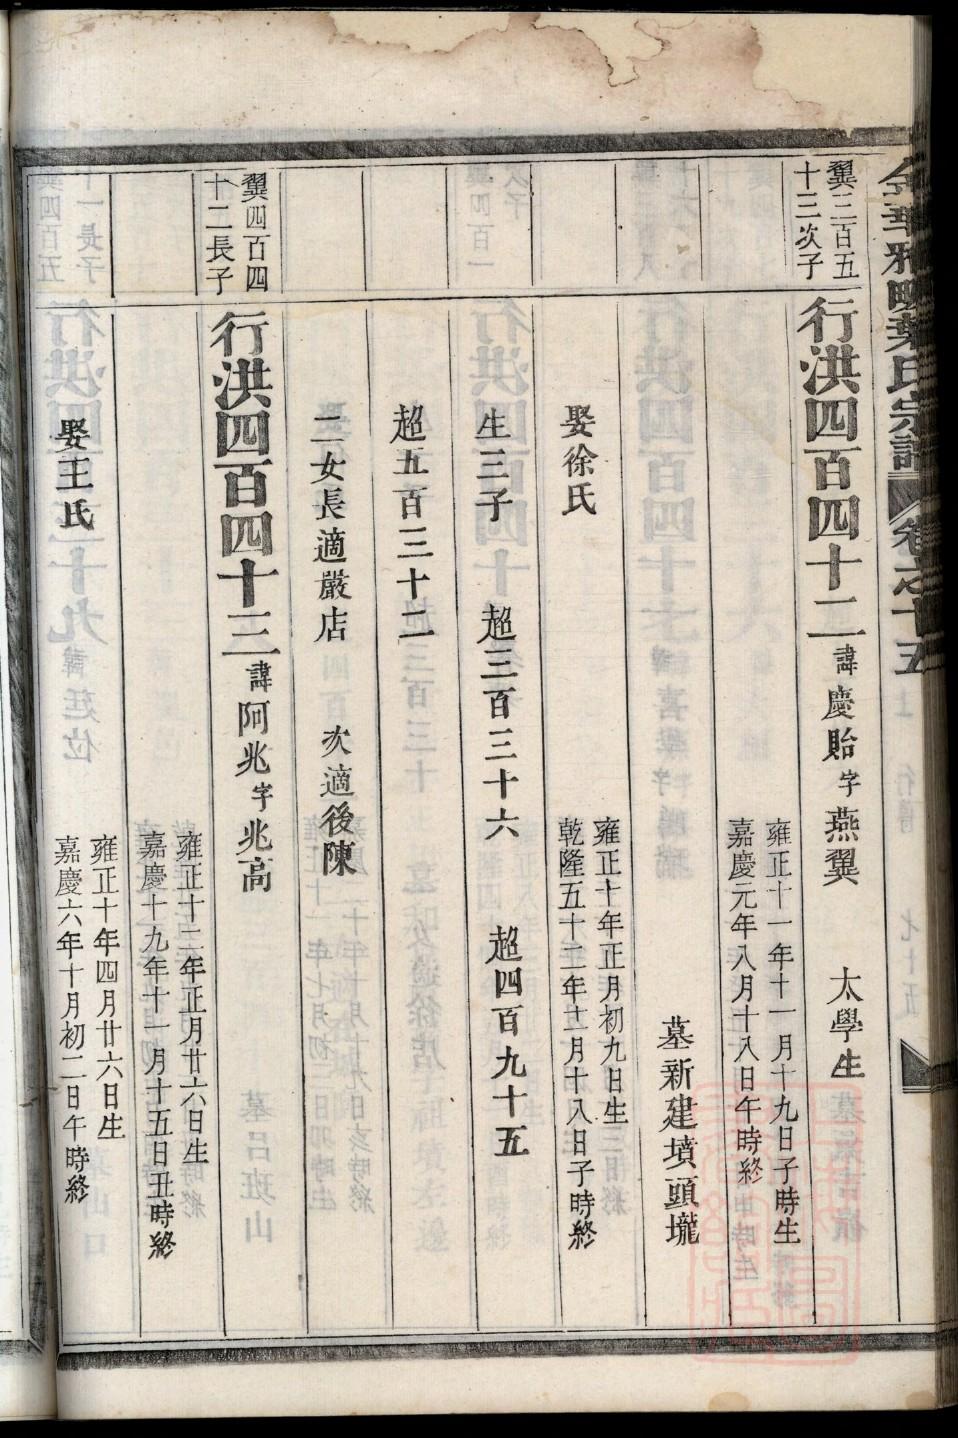 金華雅畈葉氏宗譜 卷之十五
翼三百五
十三次子
行洪四百四十二 諱慶貽 字燕翼 太學生
雍正十一年十一月十九日子時生
嘉慶元年八月十八日午時終
墓新建墳頭壠
娶徐氏
雍正十年正月初九日生
乾隆五十二年十二月十八日子時終
生三子 超三百三十六 超四百九十五
超五百三十二
二女長適嚴店 次適後陳
翼四百四
十二長子
行洪四百四十三 諱阿兆 字兆高
雍正十二年正月廿六日生
嘉慶十九年十一月十五日丑時終
娶王氏
雍正十年四月廿六日生
嘉慶六年十月初二日午時終